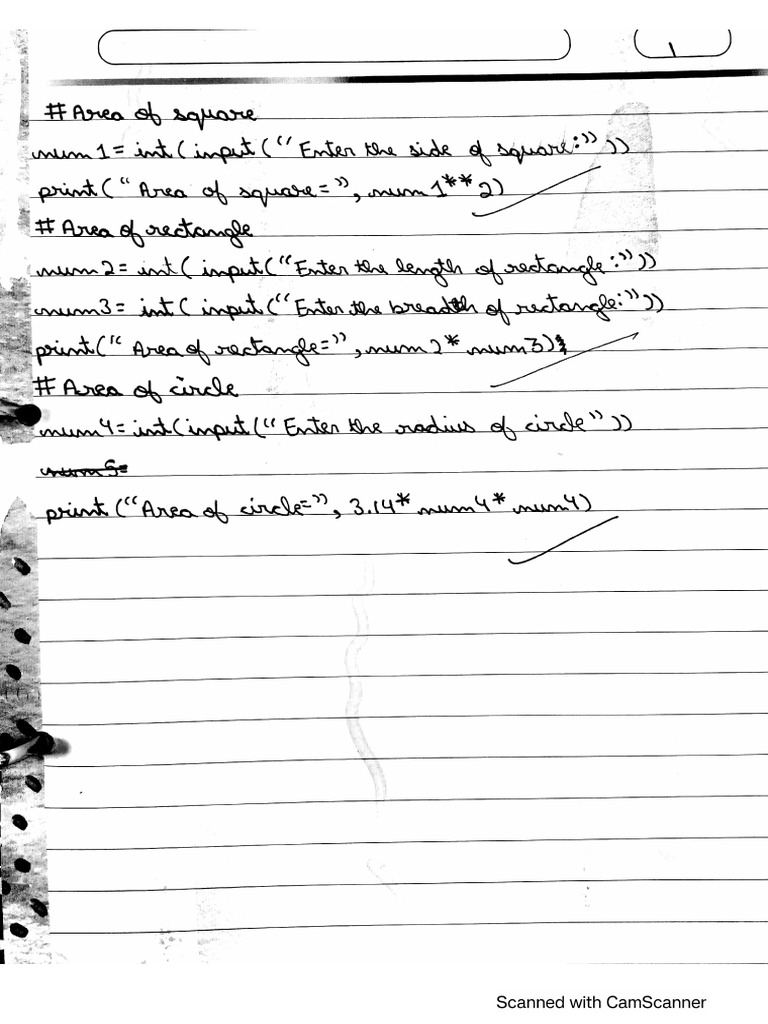 1
# Area of square
num1 = int(input("Enter the side of square:"))
print("Area of square=", num1**2)
# Area of rectangle
num2 = int(input("Enter the length of rectangle:"))
num3 = int(input("Enter the breadth of rectangle:"))
print("Area of rectangle=", num2*num3)
# Area of circle
num4 = int(input("Enter the radius of circle"))
num5=
print("Area of circle=", 3.14*num4*num4)
Scanned with CamScanner